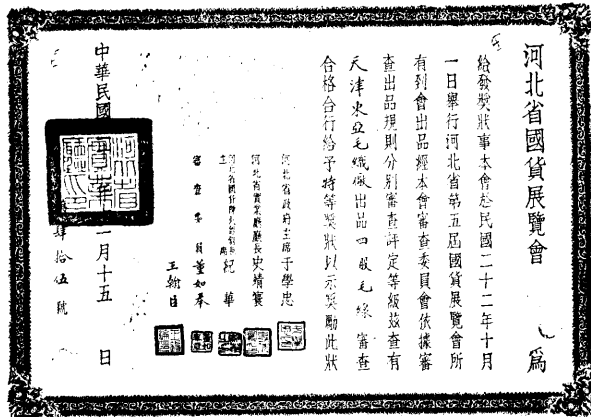 河北省國貨展覽會 爲
給發獎狀事本會於民國二十二年十月
一日舉行河北省第五屆國貨展覽會所
有到會出品經本會審查委員會依據審
查出品規則分別審查評定等級茲查有
天津東亞毛織廠出品四股毛線審查
合格合行給予特等獎狀以示奬勵此狀
河北省政府主席于學忠
河北省實業廳廳長史靖寰
紀華
審查委員董如奉
王翰臣
中華民國 一月十五日
肆拾伍號
河北省實業廳之印